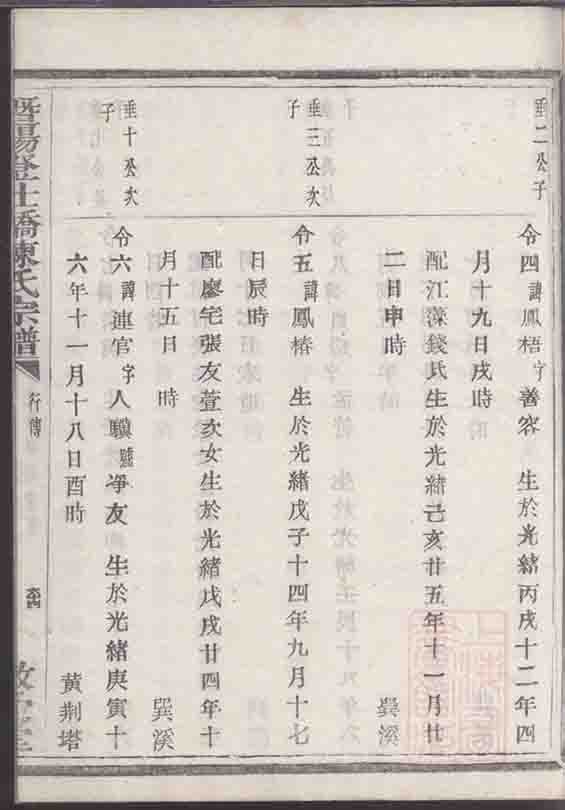 垂二公子
令四諱鳳梧字善容 生於光緒丙戌十二年四
月十九日戌時
配江藻錢氏生於光緒己亥廿五年十一月廿
二日申時 巽溪
垂三公次
子
令五諱鳳椿 生於光緒戊子十四年九月十七
日辰時
配廖宅張友萱次女生於光緒戊戌廿四年十
月十五日 時 巽溪
垂十公次
子
令六諱連官字人驥號爭友 生於光緒庚寅十
六年十一月十八日酉時 黃荆塔
暨陽登仕橋陳氏宗譜
行傳